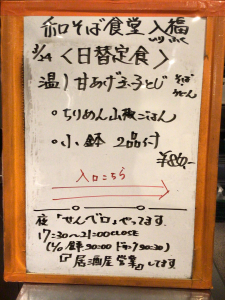 和そば食堂 入福
いりふく
3/24 〈日替定食〉
温) 甘あげ玉子とじ そば うどん
○ちりめん山椒ごはん
○小鉢 2品付
¥860-
入口こちら
夜「せんべロ」やってます
17:30~21:00CLOSE
(L/O 20:00 20:30)
『居酒屋営業』してます